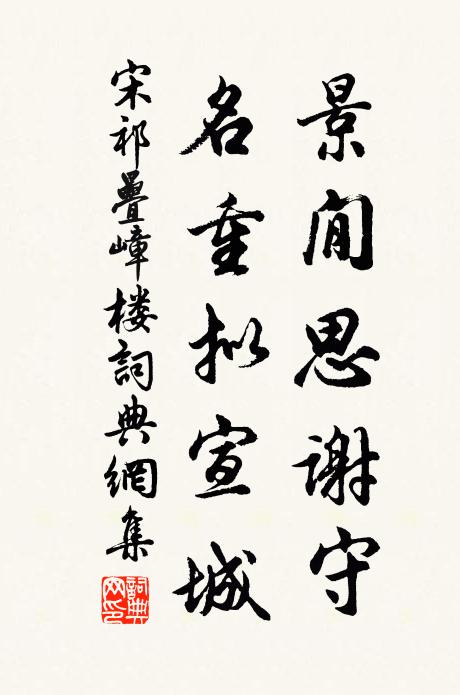 景閒思谢守
名重拟宣城
宋祁疊嶂楼詞典網集
詞典
网印